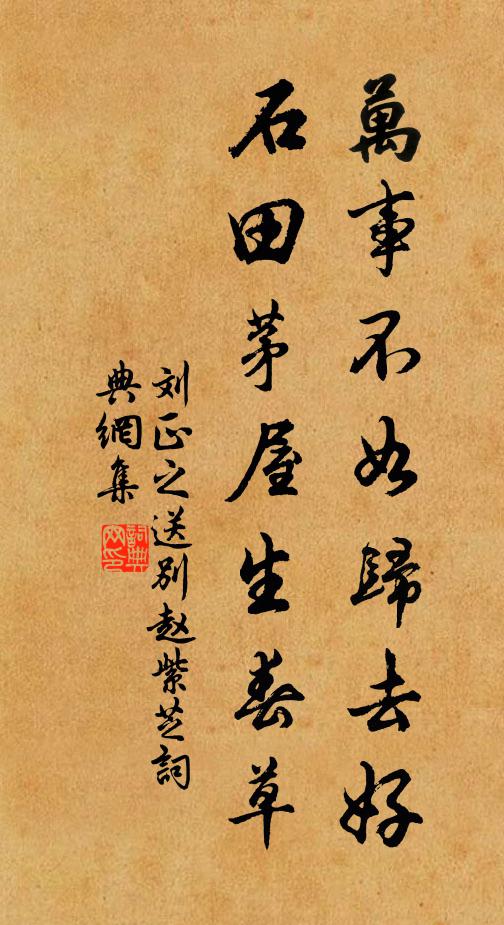 萬事不如歸去好
石田茅屋生春草
刘正之送别赵紫芝詞
典網集
詞典网印